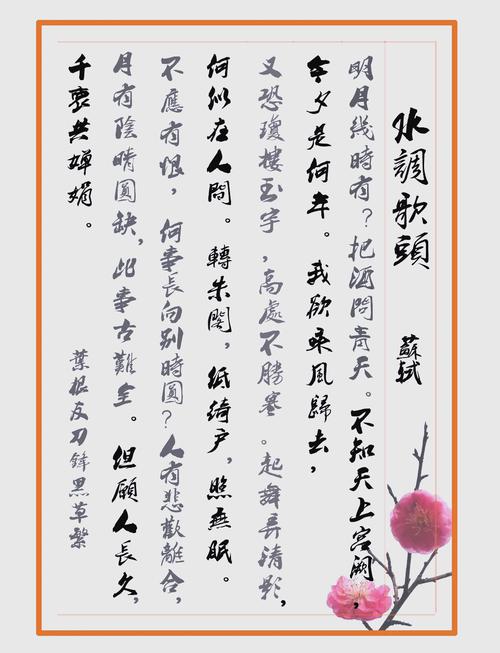 水調歌頭
蘇軾
明月幾時有？把酒問青天。不知天上宮闕，
今夕是何年。我欲乘風歸去，
又恐瓊樓玉宇，高處不勝寒。起舞弄清影，
何似在人間。轉朱閣，低綺户，照無眠。
不應有恨，何事長向別時圓？人有悲歡離合，
月有陰晴圓缺，此事古難全。但願人長久，
千裏共嬋娟。
葉根友刀鋒黑草繁